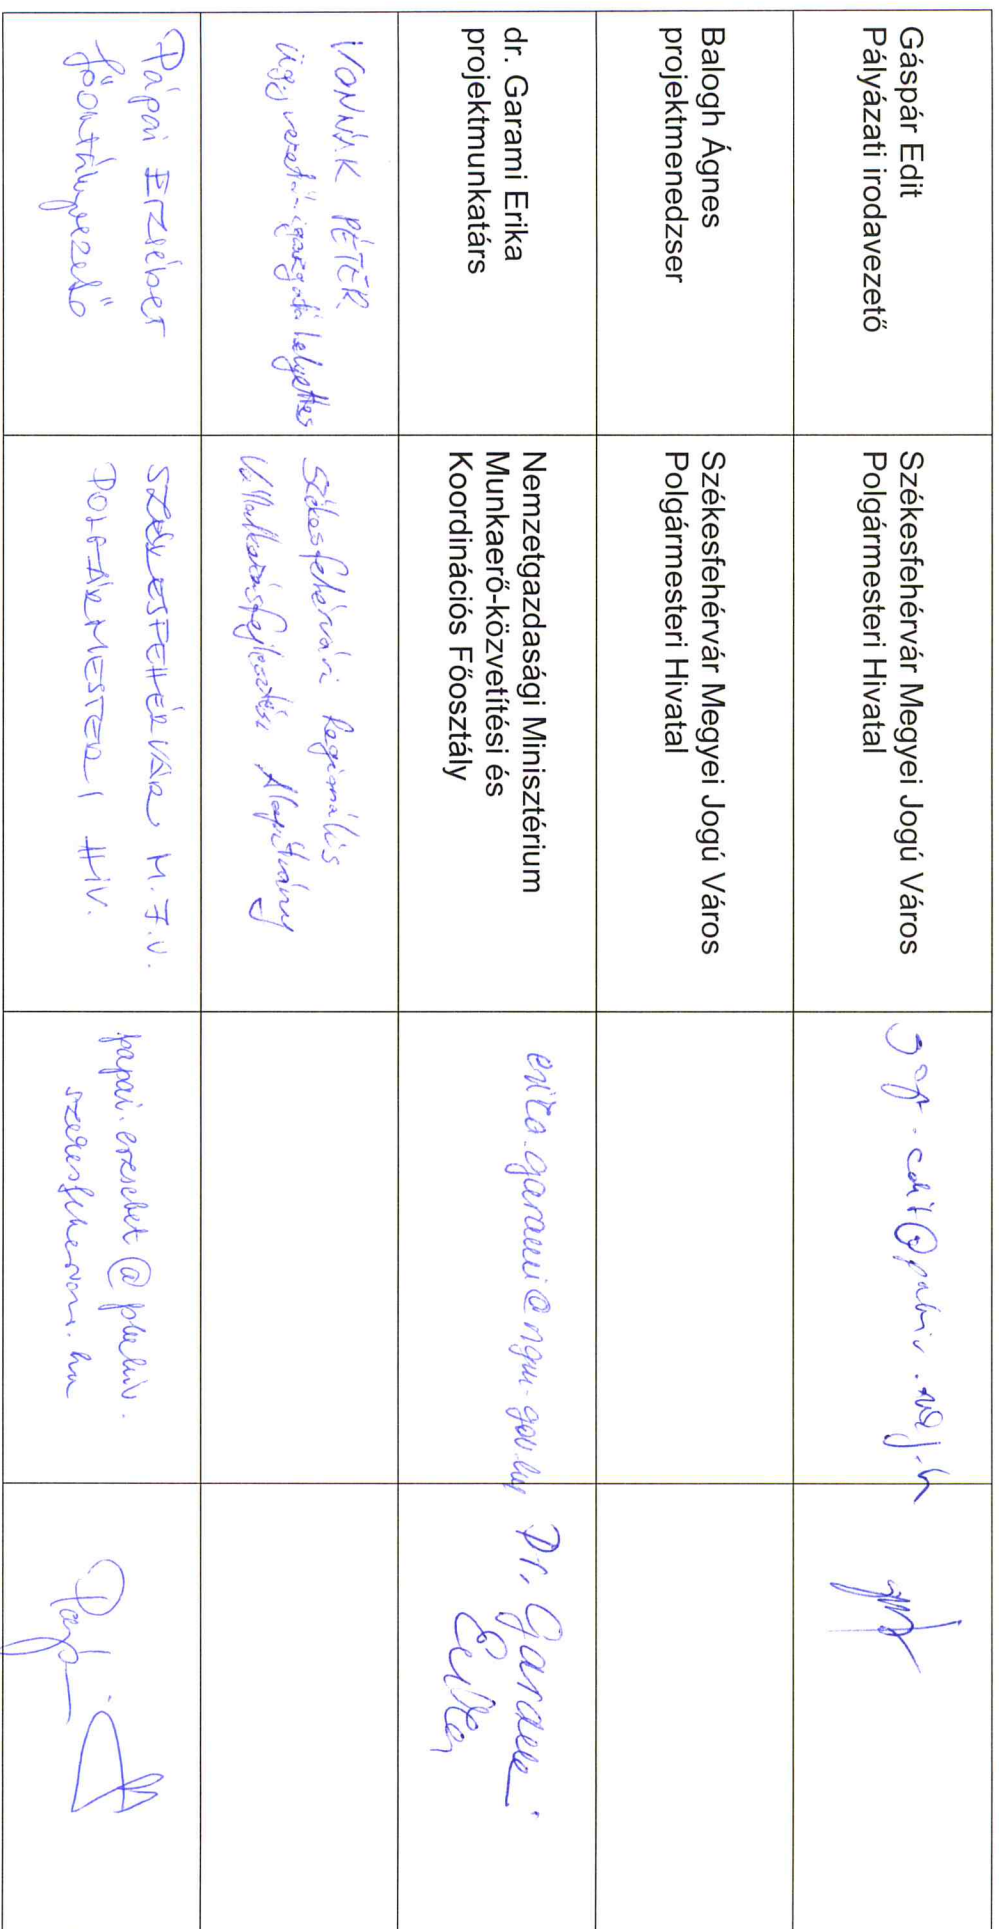 Gáspár Edit
Pályázati irodavezető
Székesfehérvár Megyei Jogú Város
Polgármesteri Hivatal
Balogh Ágnes
projektmenedzser
Székesfehérvár Megyei Jogú Város
Polgármesteri Hivatal
dr. Garami Erika
projektmunkatárs
Nemzetgazdasági Minisztérium
Munkaerő-közvetítési és
Koordinációs Főosztály
erika.garami@ngm.gov.hu
Dr. Garami
Erika
VONNÁK PÉTER
ügyvezető-igazgató helyettes
Székesfehérvári Regionális
Vállalkozásfejlesztési Alapítvány
Pápai Erzsébet
főosztályvezető
SZÉKESFEHÉRVÁR M.J.V.
POLGÁRMESTERI HIV.
papai.erzsebet@
szekesfehervar.hu